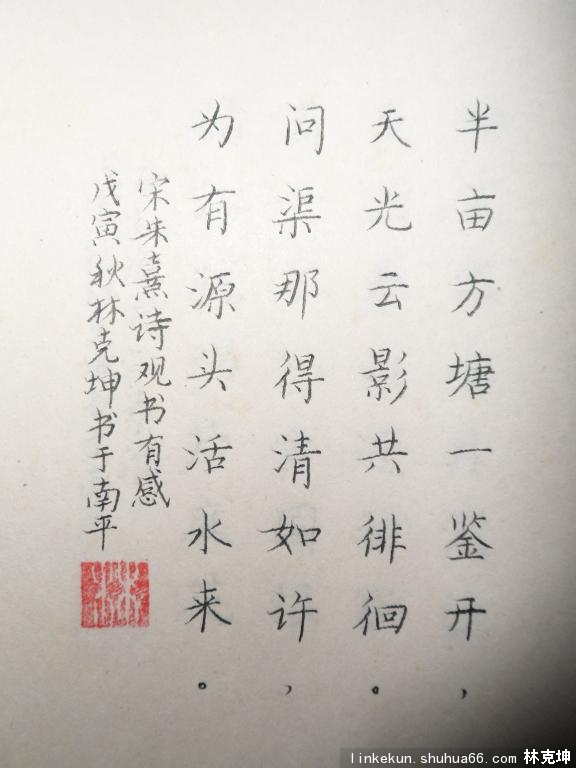 半亩方塘一鉴开，
天光云影共徘徊。
问渠那得清如许，
为有源头活水来。
宋朱熹诗观书有感
戊寅秋林克坤书于南平
linkekun.shuhua66.com 林克坤